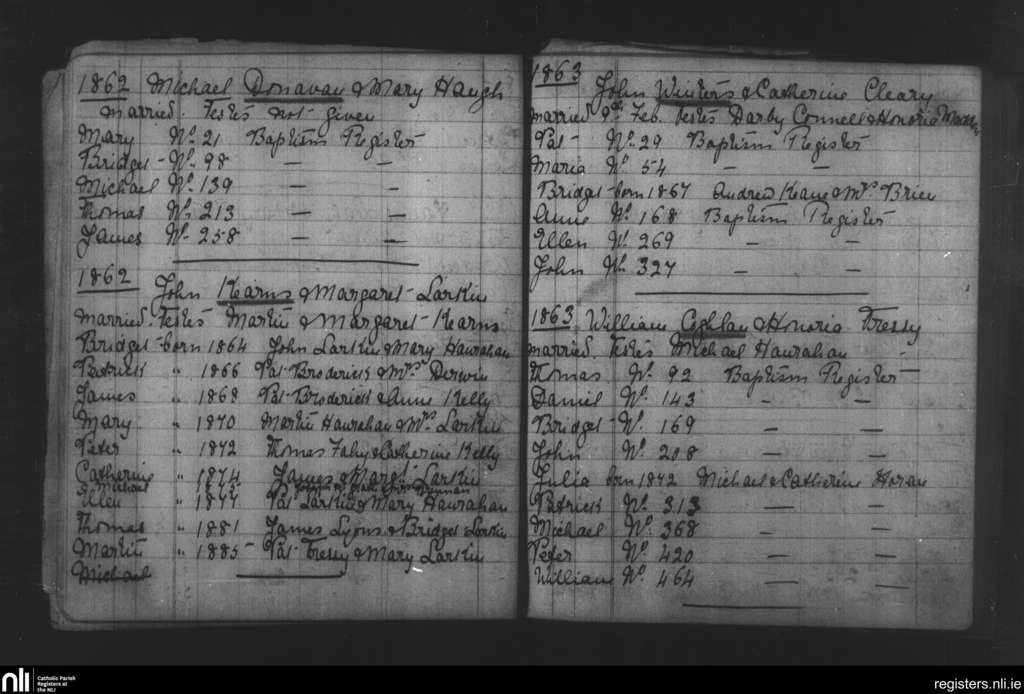 1862 Michael Donavan & Mary Haugh
married. Testes not given
Mary No. 21 Baptism Register
Bridget - No. 98 — —
Michael No. 139 — —
Thomas No. 213 — —
James No. 258 — —
1862 John Kearns & Margaret Larkin
married. Testes Martin & Margaret Kearns
Bridget - born 1864 John Larkin & Mary Hanrahan
Patrick " 1866 Pat Broderick & Mrs Derwin
James " 1868 Pat Broderick & Anne Kelly
Mary " 1870 Martin Hanrahan & Mrs Larkin
Peter " 1872 Thomas Fahy & Catherine Kelly
Catherine " 1874 James & Margt Larkin
& Michael
Ellen " 1877 Pat Larkin & Mary Hanrahan
Thomas " 1881 James Lyons & Bridget Larkin
Martin " 1885 Pat Tressy & Mary Larkin
Michael
1863 John Winters & Catherine Cleary
married 9th Feb. Testes Darby Connell & Honoria
Pat - No. 29 Baptism Register
Maria No. 54 — —
Bridget - born 1867 Andrew Keane & Mrs Brien
Anne No. 168 Baptism Register
Ellen No. 269 — —
John No. 327 — —
1863 William Coghlan & Honoria Tressy
married. Testes Michael Hanrahan
Thomas No. 92 Baptism Register
Daniel No. 143 — —
Bridget - No. 169 — —
John No. 208 — —
Julia born 1872 Michael & Catherine Horan
Patrick No. 313 — —
Michael No. 368 — —
Peter No. 420 — —
William No. 464 — —
nli Catholic Parish
Registers at
the NLI
registers.nli.ie